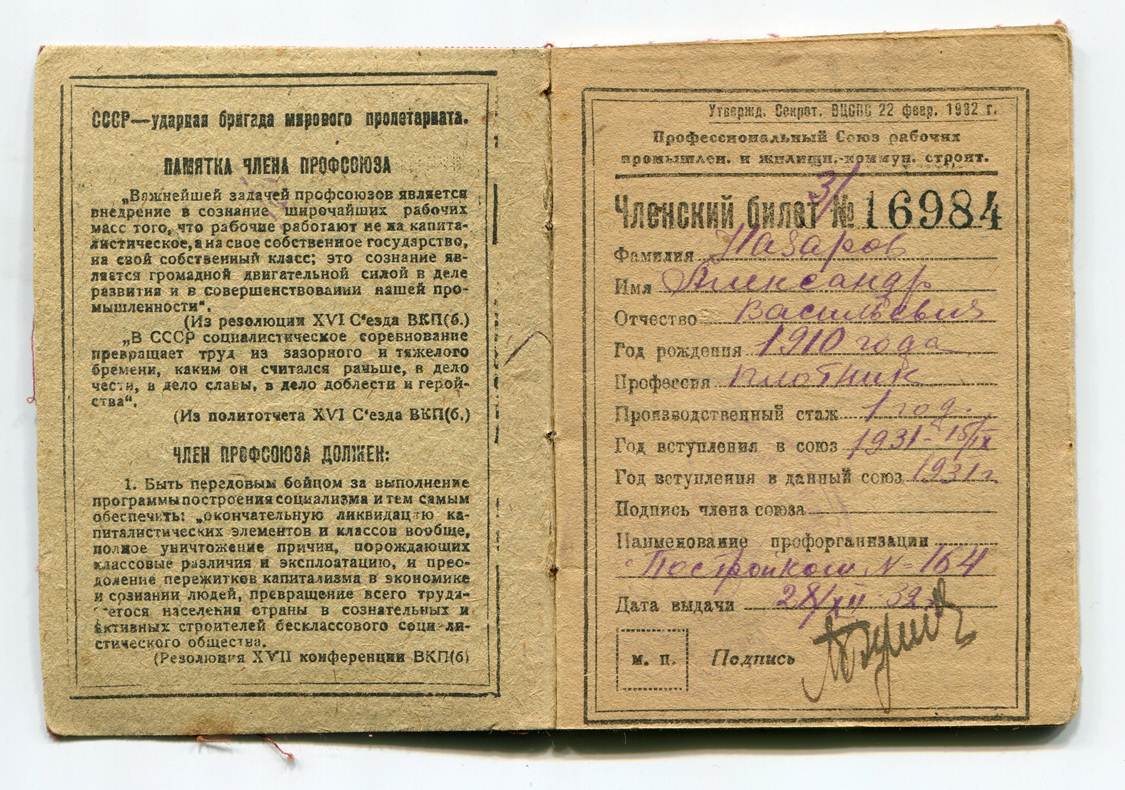 СССР—ударная бригада мирового пролетариата.
ПАМЯТКА ЧЛЕНА ПРОФСОЮЗА
„Важнейшей задачей профсоюзов является
внедрение в сознание широчайших рабочих
масс того, что рабочие работают не на капита-
листическое, а на свое собственное государство,
на свой собственный класс; это сознание яв-
ляется громадной двигательной силой в деле
развития и в совершенствовании нашей про-
мышленности“.
(Из резолюции XVI С'езда ВКП(б.)
„В СССР социалистическое соревнование
превращает труд из зазорного и тяжелого
бремени, каким он считался раньше, в дело
чести, в дело славы, в дело доблести и герой-
ства“.
(Из политотчета XVI С'езда ВКП(б.)
ЧЛЕН ПРОФСОЮЗА ДОЛЖЕН:
1. Быть передовым бойцом за выполнение
программы построения социализма и тем самым
обеспечить: „окончательную ликвидацию ка-
питалистических элементов и классов вообще,
полное уничтожение причин, порождающих
классовые различия и эксплоатацию, и прео-
доление пережитков капитализма в экономике
и сознании людей, превращение всего трудя-
щегося населения страны в сознательных и
активных строителей бесклассового социали-
стического общества.
(Резолюция XVII конференции ВКП(б)
Утвержд. Секрет. ВЦСПС 22 февр. 1932 г.
Профессиональный Союз рабочих
промышлен. и жилищн.-коммун. строит.
Членский билет № 16984
Фамилия Назаров
Имя Александр
Отчество Васильевич
Год рождения 1910 года
Профессия плотник
Производственный стаж 1 год.
Год вступления в союз 1931-15/IX
Год вступления в данный союз 1931 г
Подпись члена союза
Наименование профорганизации
Постройком N-164
Дата выдачи 28/XII 32
М. П. Подпись